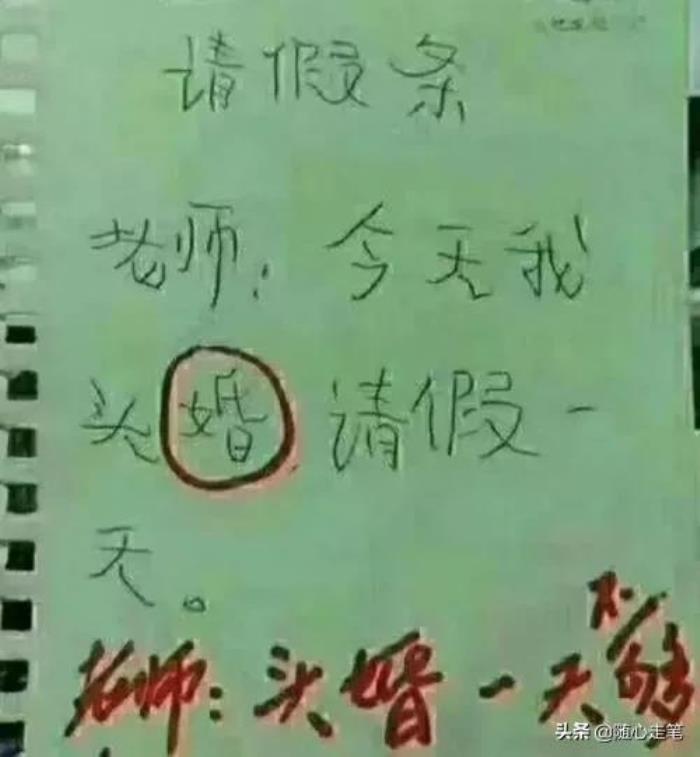 请假条
老师：今天我
头婚请假一
天。
老师：头婚一天不够
头条 @随心走笔